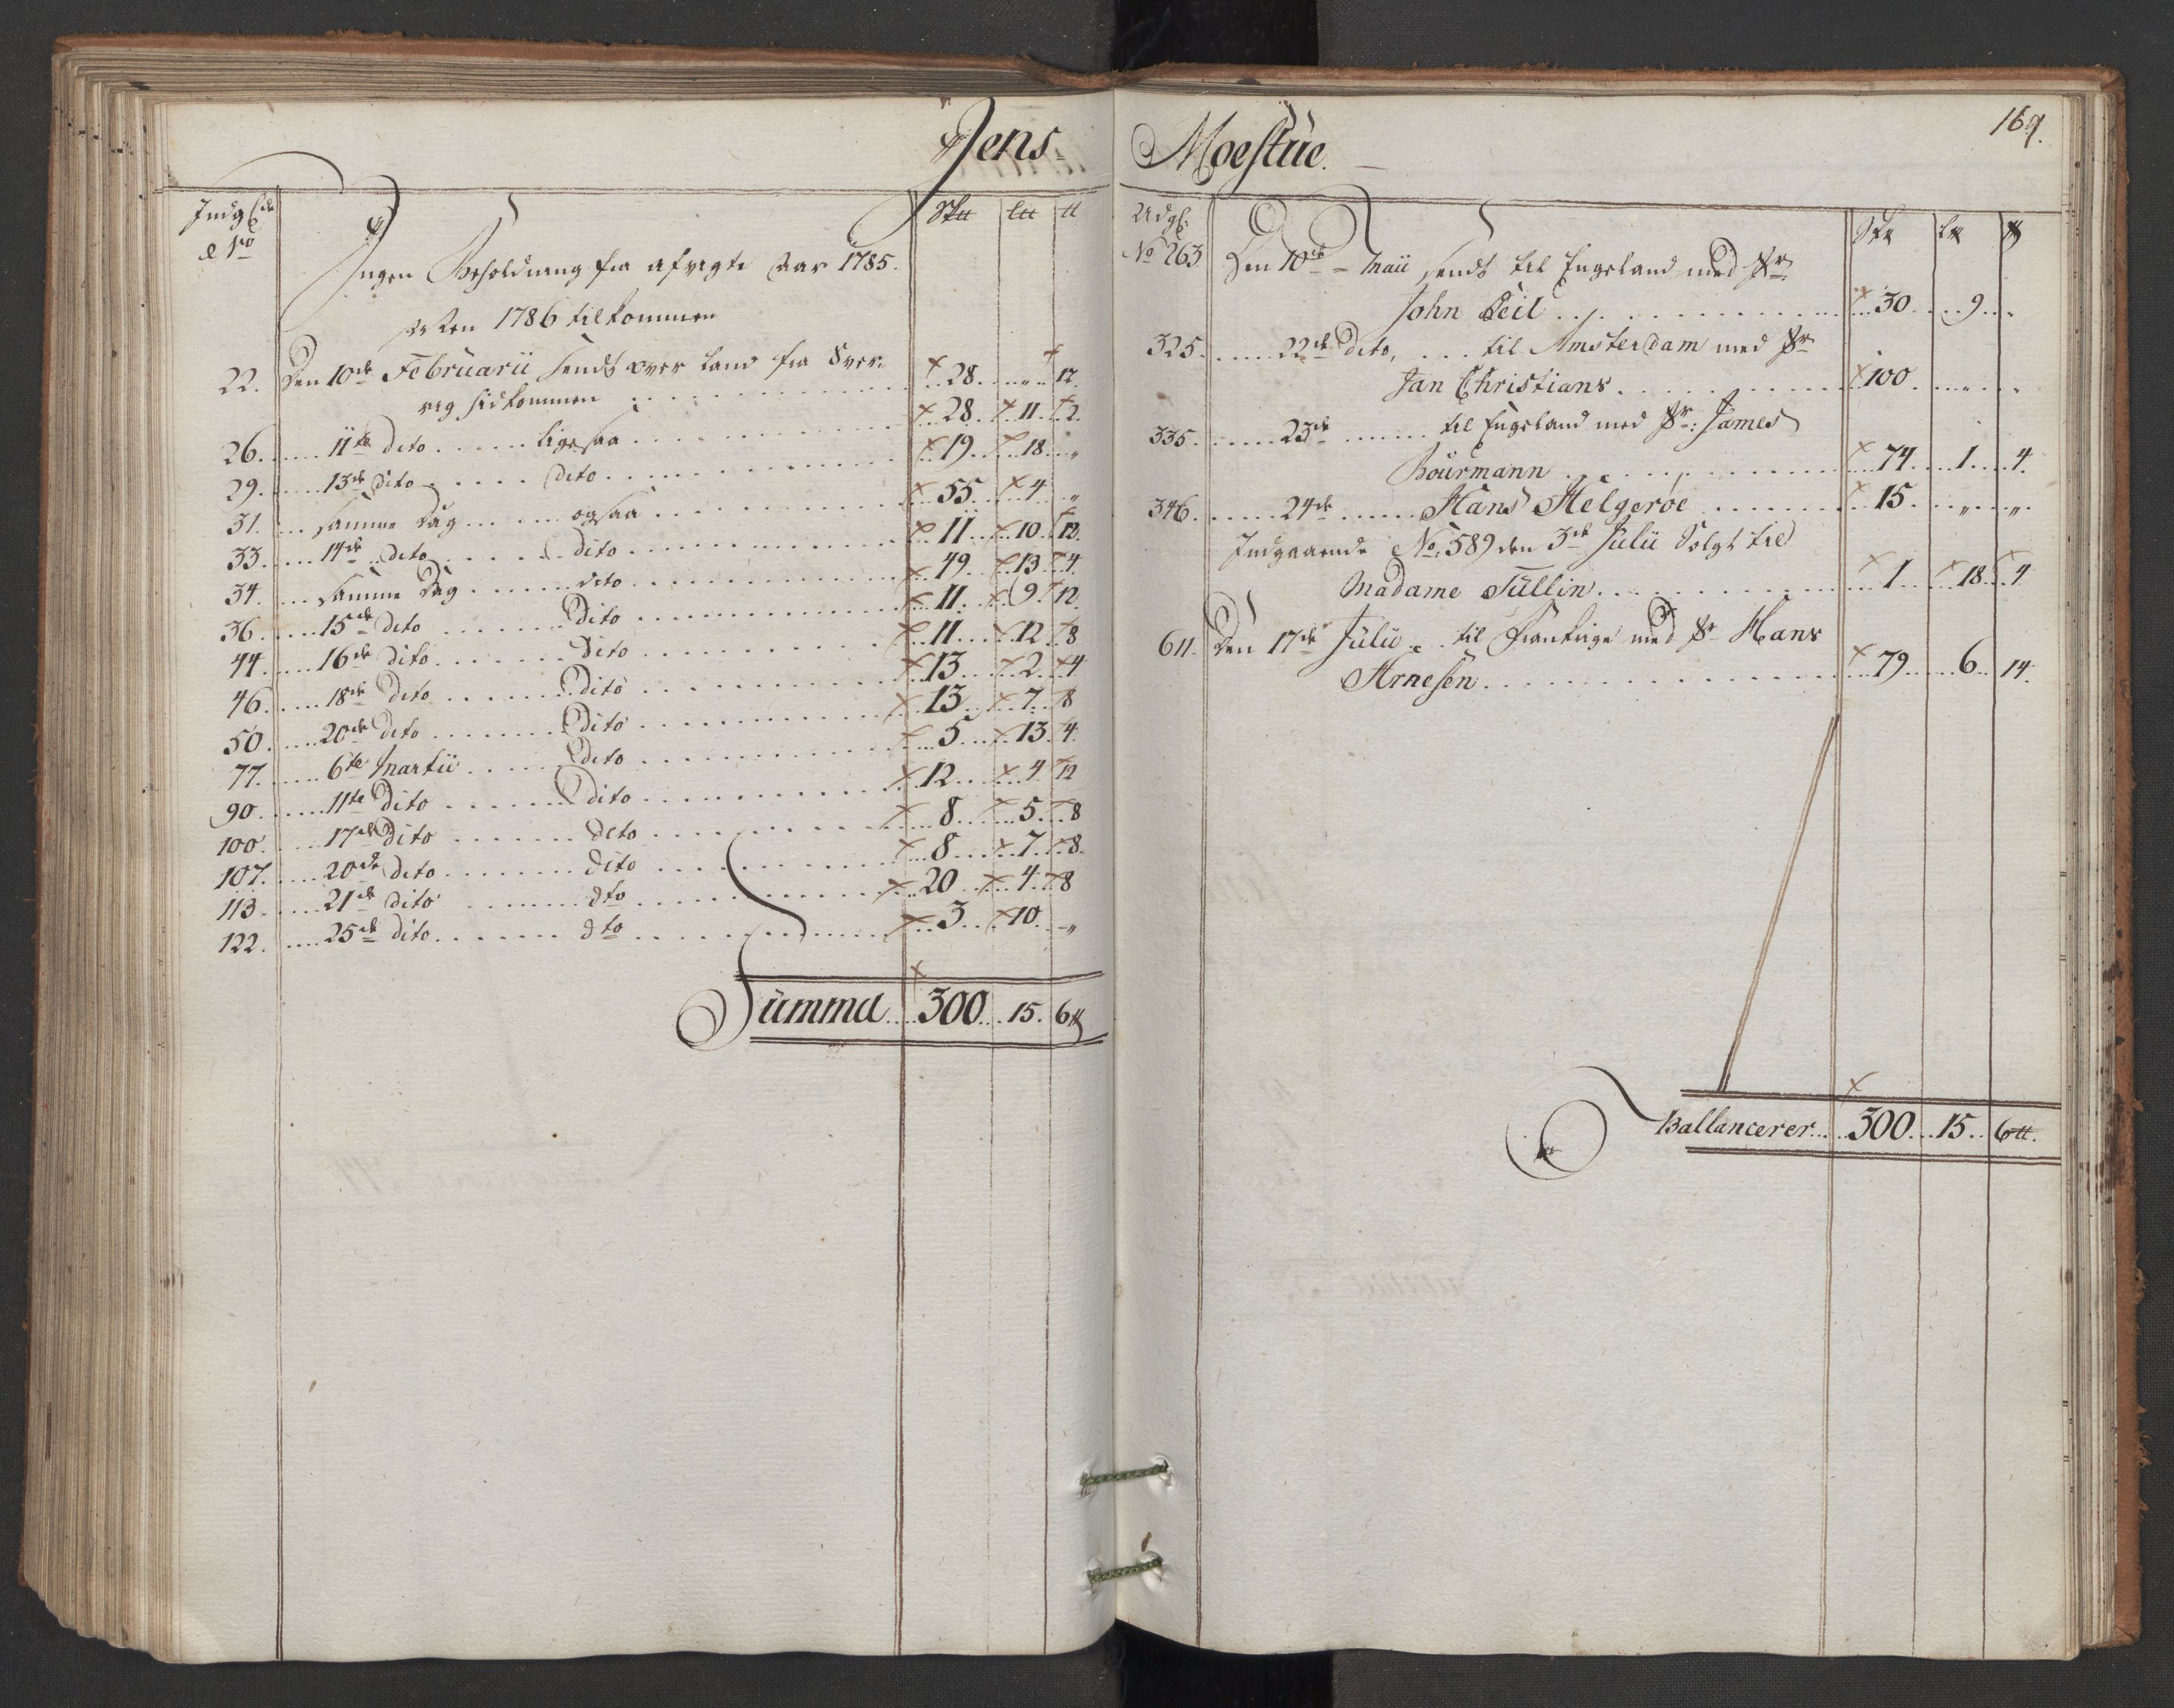 Jens
Indg
No
Ingen Beholdning fra afvigte Aar 1785.
1786 tilkommen
22. Den 10de Februarii sendt over Land fra Sver- 28. „ 12.
rig hidkommen
26. 11te dito ligesaa 28. 11. 2.
29. 13de dito dito 19. 18. „
31. samme Dag ogsaa 55. 4. „
33. 14de dito dito 11. 10. 12.
34. samme Dag dito 49. 13. 4.
36. 15de dito dito 11. 9. 12.
44. 16de dito dito 11. 12. 8
46. 18de dito dito 13. 2. 4
50. 20de dito dito 13. 7. 8
77. 6te Martii dito 5. 13. 4.
90. 11te dito dito 12. 4. 12
100. 17de dito dito 8. 5. 8
107. 20de dito dito 8. 7. 8.
113. 21de dito dto 20. 4. 8
122. 25de dito dto 3. 10. „
Summa 300. 15. 6
Moestue.
169.
Udg
No 263. Den 10de Maii sendt til Engeland med Sr.
John Ceil 30. 9.
325. 22de dito, til Amsterdam med Sr
Jan Christians 100. „ „
335. 23de til Engeland med Sr: James
Bourmann 74. 1. 4.
346. 24de Hans Helgeröe 15. „ „
Indgaaende No: 589 den 3de Julii Solgt til
Madame Tullin 1. 18. 4
611. Den 17de Julii til Frankrige med Sr Hans
Arnesen 79. 6. 14.
Ballancerer 300. 15. 6